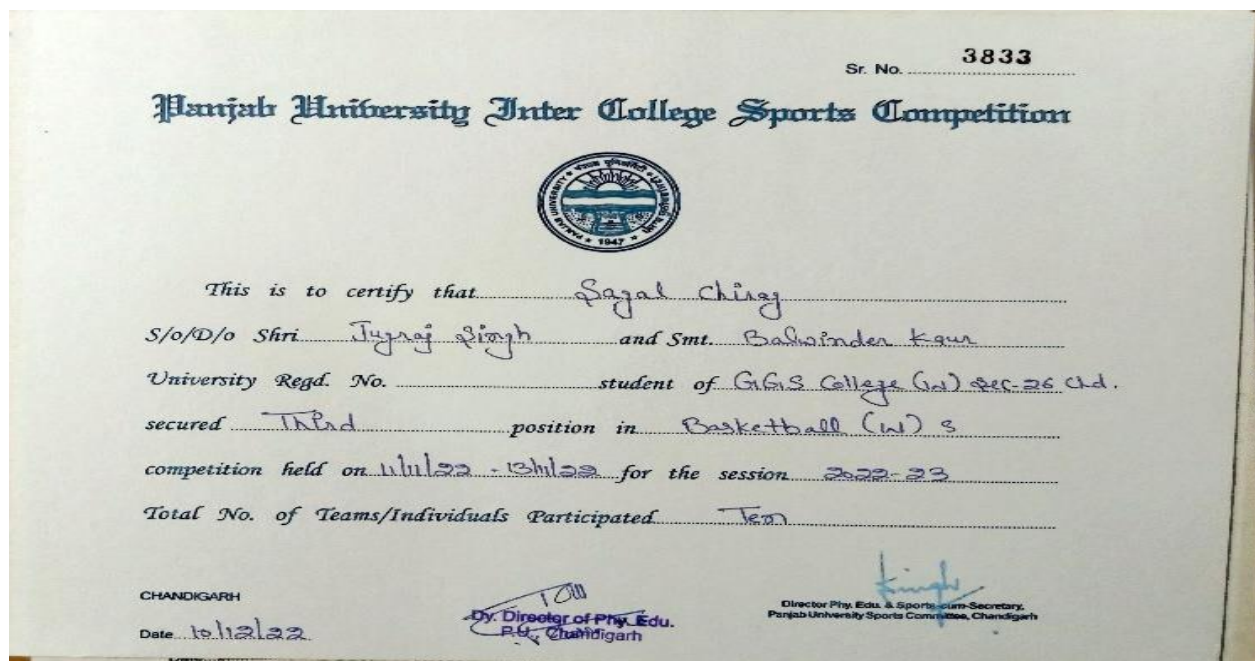 Sr. No. 3833
Panjab University Inter College Sports Competition
PANJAB UNIVERSITY
1947
This is to certify that Sazal Chirag
S/o/D/o Shri Jugraj Singh and Smt. Balwinder Kaur
University Regd. No. student of G.G.S College (W) Sec-26 Chd.
secured Third position in Basketball (W) S
competition held on 11/11/22 - 13/11/22 for the session 2022-23
Total No. of Teams/Individuals Participated Ten
CHANDIGARH
Date 10/12/22
Dy. Director of Phy. Edu.
P.U., Chandigarh
Director Phy. Edu. & Sports-cum-Secretary,
Panjab University Sports Committee, Chandigarh